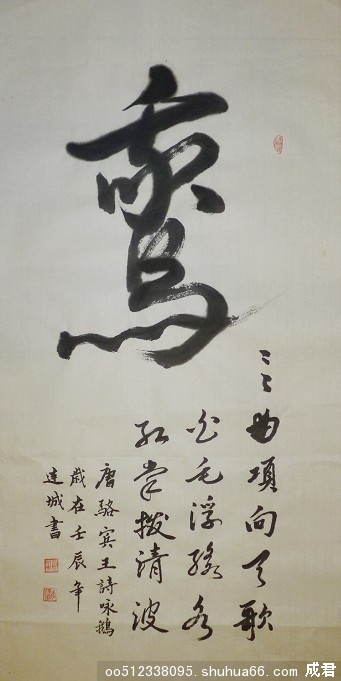 鵞
〻〻曲項向天歌
白毛浮綠水
紅掌撥清波
唐駱宾王詩咏鵝
歲在壬辰年
城書
oo512338095.shuhua66.com 成君